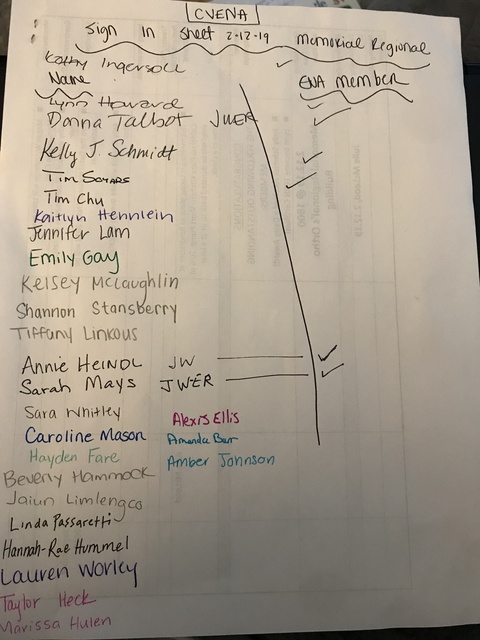 CVENA
Sign In Sheet 2-12-19 Memorial Regional
Kathy Ingersoll ✓
Name ENA Member
Lynn Howard ✓
Donna Talbot JWER ✓
Kelly J. Schmidt ✓
Tim Soyars ✓
Tim Chu
Kaitlyn Hennlein
Jennifer Lam
Emily Gay
Kelsey McLaughlin
Shannon Stansberry
Tiffany Linkous
Annie Heindl JW ✓
Sarah Mays JWER ✓
Sara Whitley Alexis Ellis
Caroline Mason Amanda Barr
Hayden Fare Amber Johnson
Beverly Hammock
Limlengco
Linda Passaretti
Hannah-Rae Hummel
Lauren Worley
Taylor Heck
Marissa Hulen